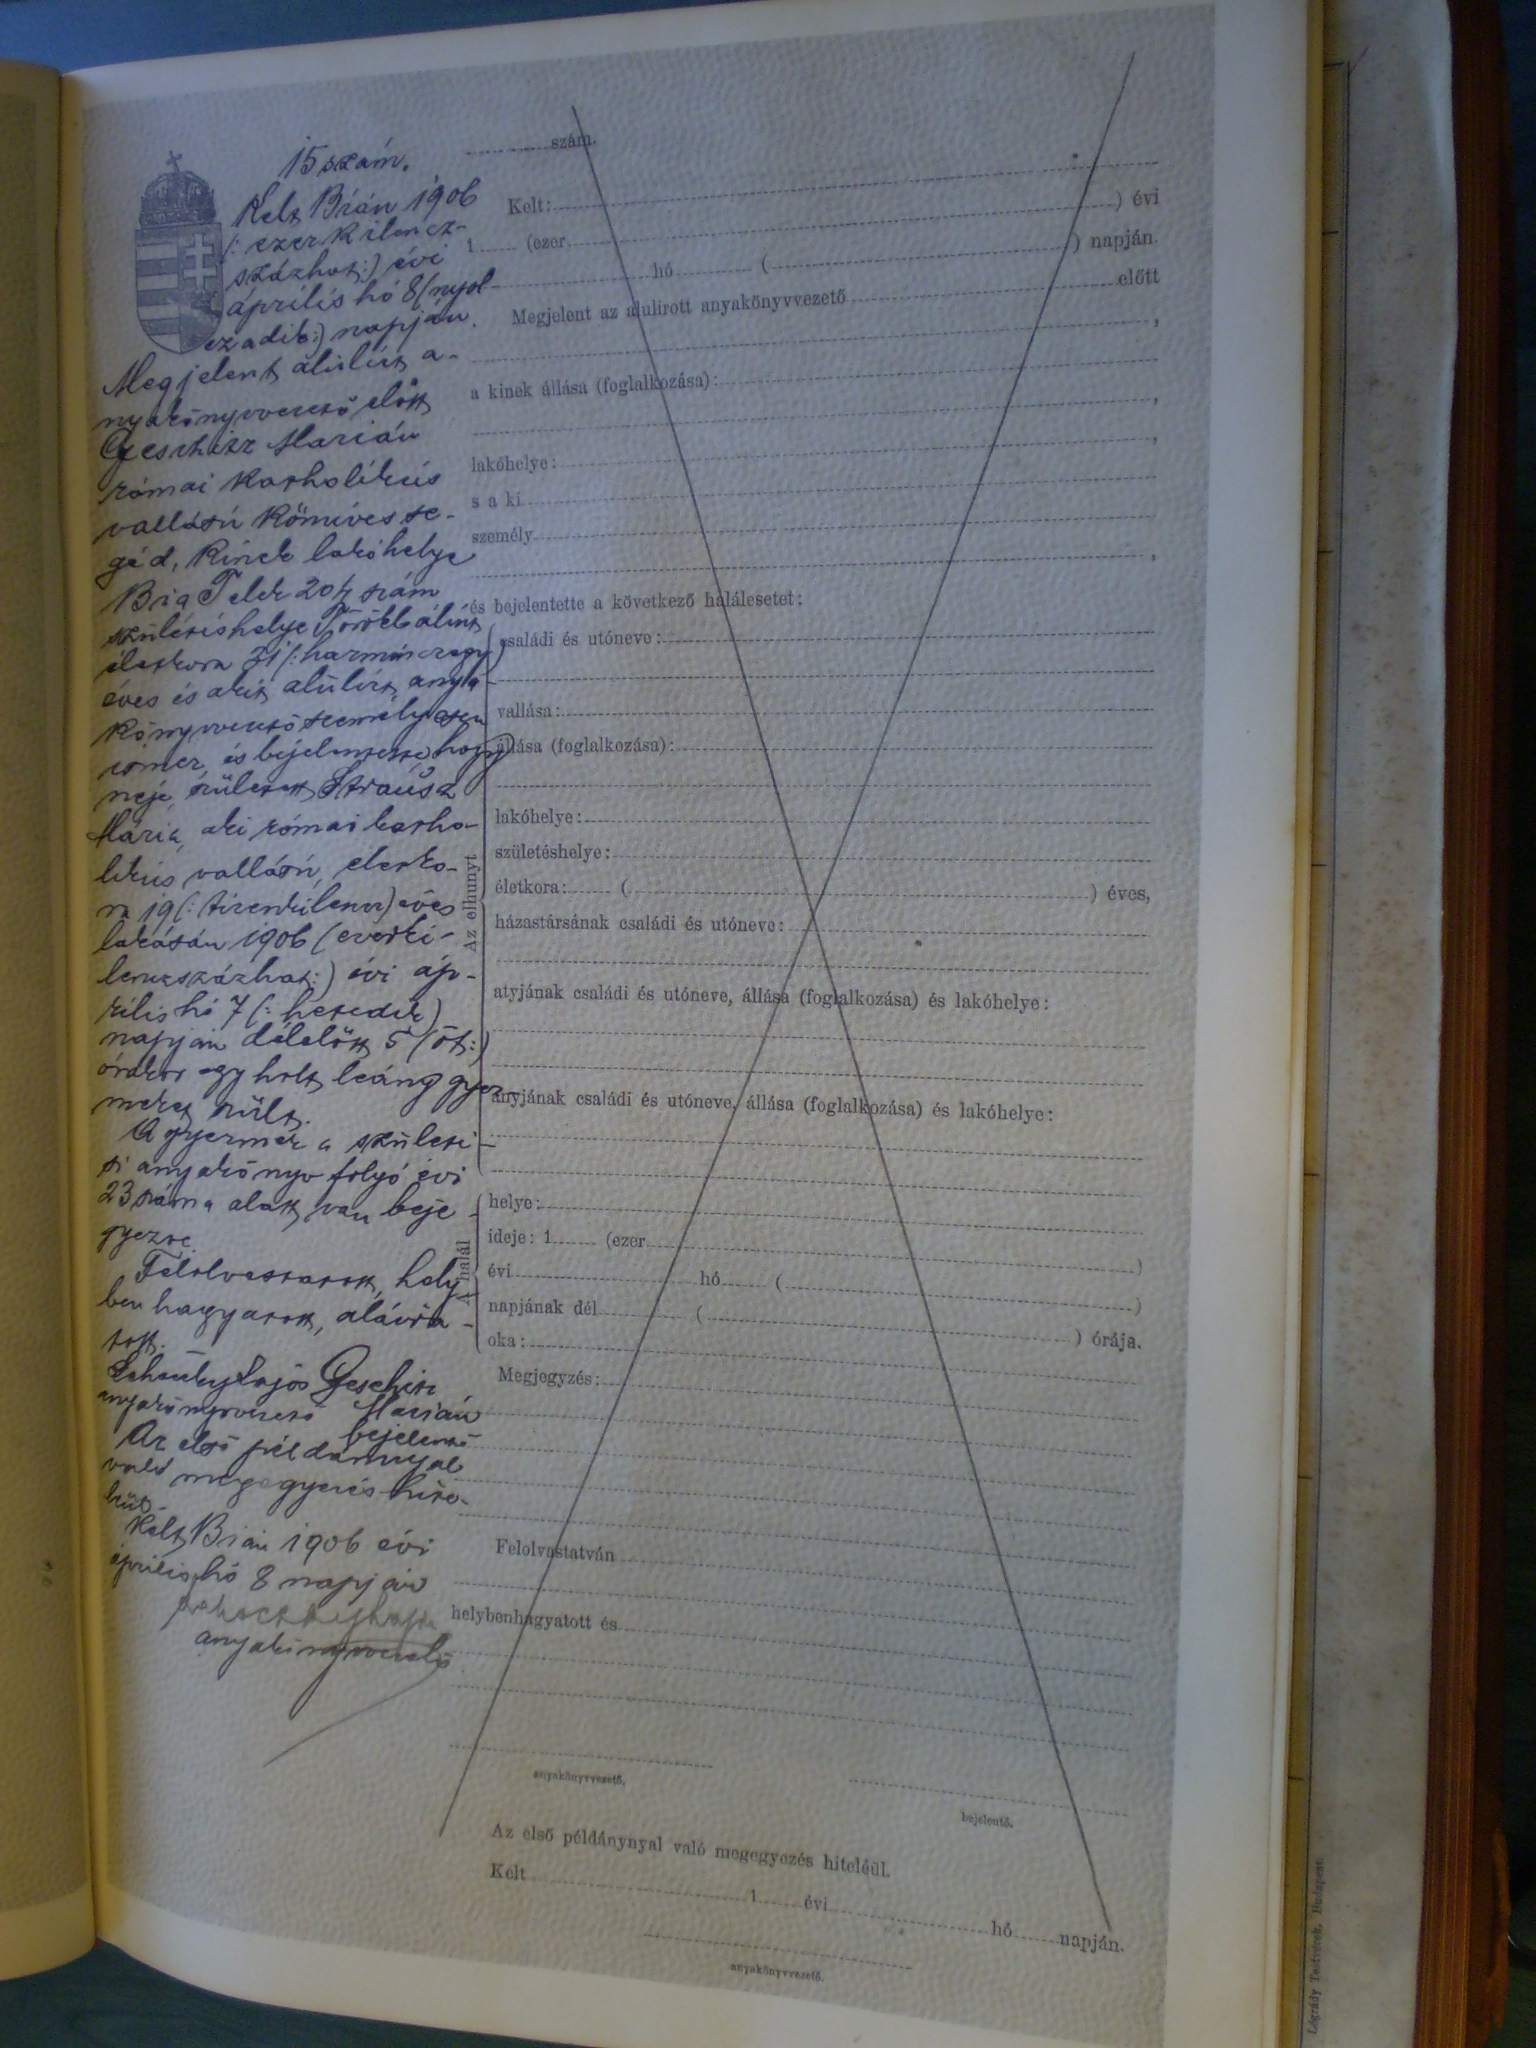 15 szám.
Kelt Bián 1906
(: ezerkilencz-
százhat:) évi
április hó 8 (nyol-
czadik:) napján.
Megjelent alulírt a-
nyakönyvvezető előtt
Geschitz Marián
római katholikus
vallású kőmíves se-
géd, kinek lakóhelye
Bia Telek 204 szám
születéshelye Törökbálint
életkora 31 (: harminczegy)
éves és akit alulírt anya-
könyvvezető személyesen
ismer, és bejelentette, hogy
neje, született Strausz
Mária, aki római katho-
likus vallású, életko-
ra 19 (: tizenkilencz) éves
lakásán 1906 (ezerki-
lenczszázhat:) évi áp-
rilis hó 7 (: hetedik)
napján délelőtt 5 (öt:)
órakor egy holt leány gyer-
meket szült.
A gyermek a születé-
si anyakönyv folyó évi
23 száma alatt van beje-
gyezve.
Felolvastatott, hely-
ben hagyatott, aláíra-
tott.
Lajos Geschitz
anyakönyvvezető Marián
bejelentő
Az első példánnyal
való megegyezés hite-
léül.
Kelt Bián 1906 évi
április hó 8 napján
anyakönyvvezető
szám.
Kelt:
1 (ezer ) évi
hó ( ) napján.
Megjelent az alulirott anyakönyvvezető előtt
,
a kinek állása (foglalkozása):
,
lakóhelye: ,
s a ki
személy ,
és bejelentette a következő halálesetet:
Az elhunyt
családi és utóneve:
vallása:
állása (foglalkozása):
lakóhelye:
születéshelye:
életkora: ( ) éves,
házastársának családi és utóneve:
atyjának családi és utóneve, állása (foglalkozása) és lakóhelye:
anyjának családi és utóneve, állása (foglalkozása) és lakóhelye:
A halál
helye:
ideje: 1 (ezer )
évi hó ( )
napjának dél ( ) órája.
oka:
Megjegyzés:
Felolvastatván
helybenhagyatott és
anyakönyvvezető.
bejelentő.
Az első példánynyal való megegyezés hiteléül.
Kelt 1 évi hó napján.
anyakönyvvezető.
Légrády Testvérek, Budapest.